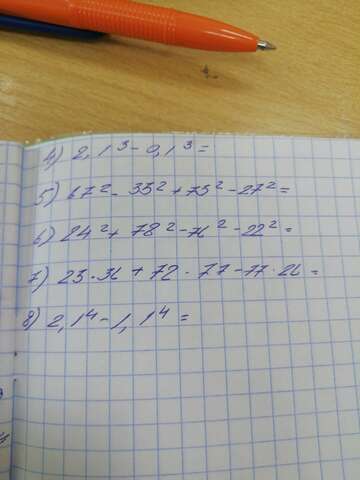 4) 2,1³ - 0,1³ =
5) 67² - 33² + 73² - 27² =
6) 24² + 78² - 76² - 22² =
7) 23 · 36 + 72 · 77 - 77 · 26 =
8) 2,1⁴ - 1,1⁴ =